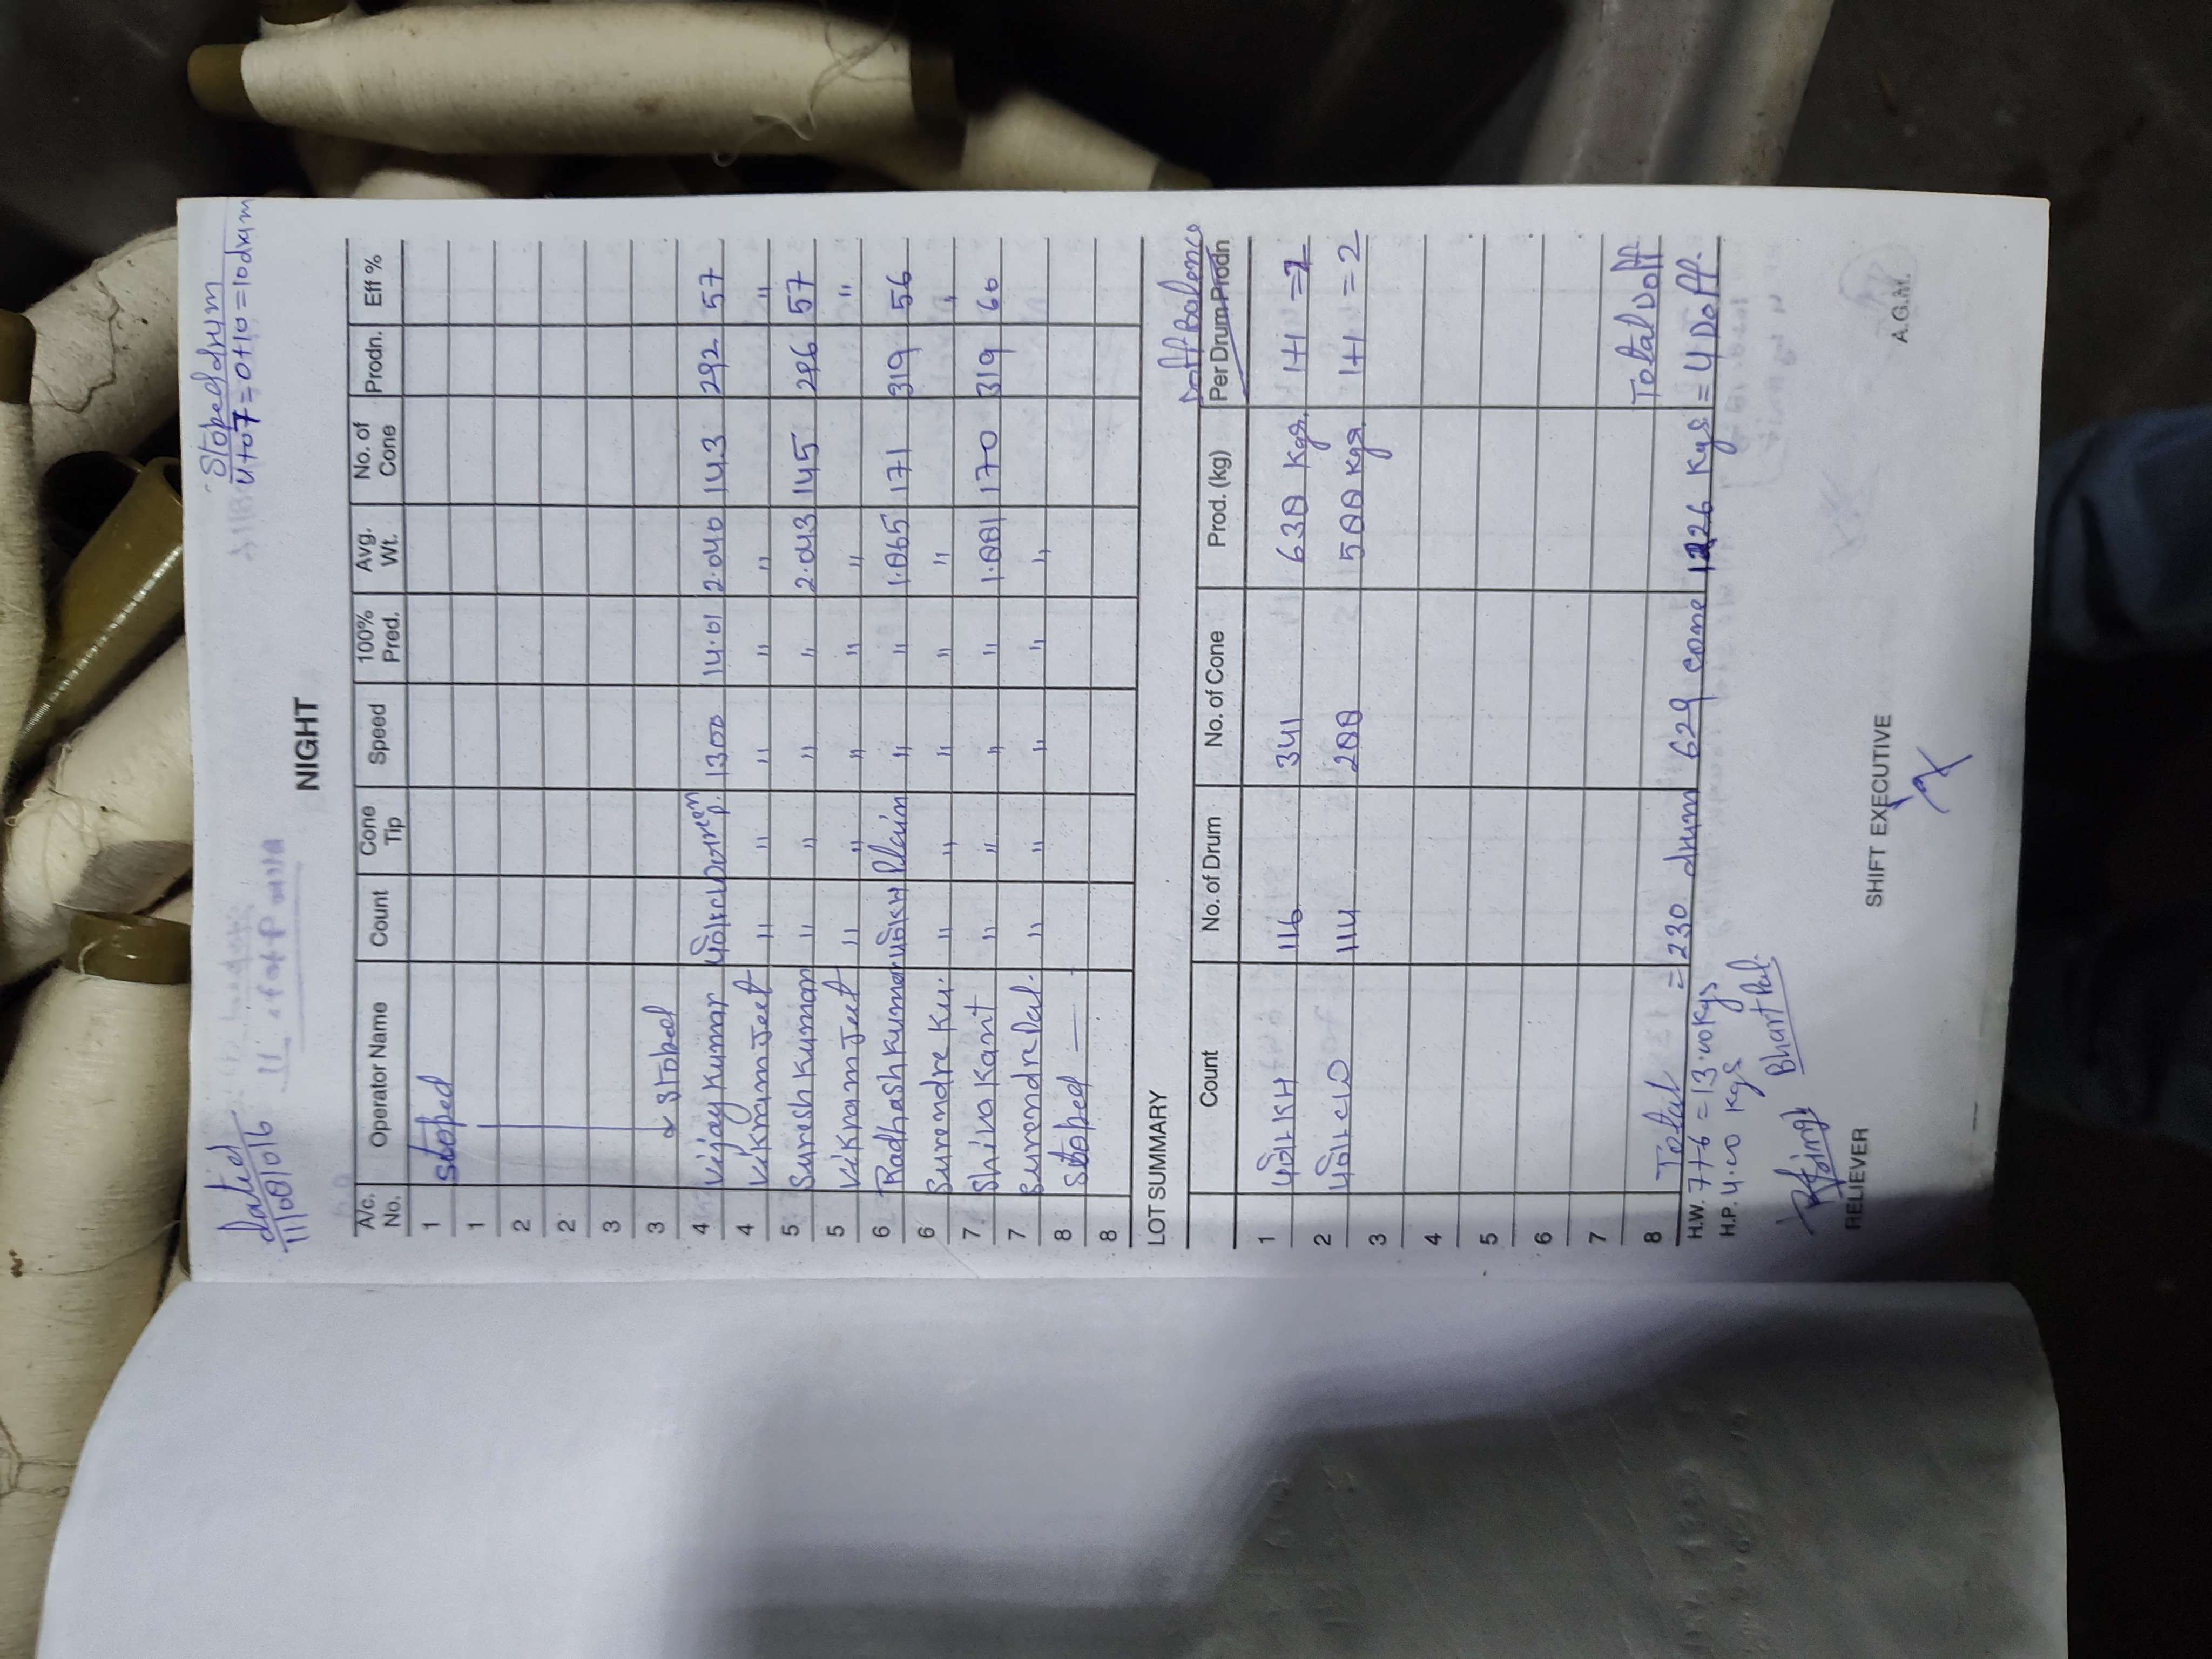 Stoped drum
Dated
11/08/016
4 to 7 = 0+10 = 10 drum
NIGHT
A/c. No. Operator Name Count Cone Tip Speed 100% Pred. Avg. Wt. No. of Cone Prodn. Eff %
1 Stoped
1
2
2
3
3 Stobed
4 Vijay Kumar 1300 14.01 2.040 143 292 57
4 Vikram Jeet " " " " " "
5 Suresh Kumar " " " " 2.043 145 296 57
5 Vikram Jeet " " " " " "
6 Radhash Kumar Plain " " 1.865 171 319 56
6 Surendre Ku. " " " " " "
7 Shiva Kant " " " " 1.881 170 319 60
7 Surendre Pal. " " " " "
8 Stobed —
8
LOT SUMMARY
Doff Balance
Count No. of Drum No. of Cone Prod. (kg) Per Drum Prodn
1 116 341 638 Kgs. 1+1 = 2
2 114 288 588 Kgs. 1+1 = 2
3
4
5
6
7
8 Total = 230 drum 629 cone 1226 Kgs = 4 Doff.
Total Doff
H.W. 7+6 = 13.00 Kgs
H.P. 4.00 Kgs
Bhart Pal.
RELIEVER SHIFT EXECUTIVE A.G.M.